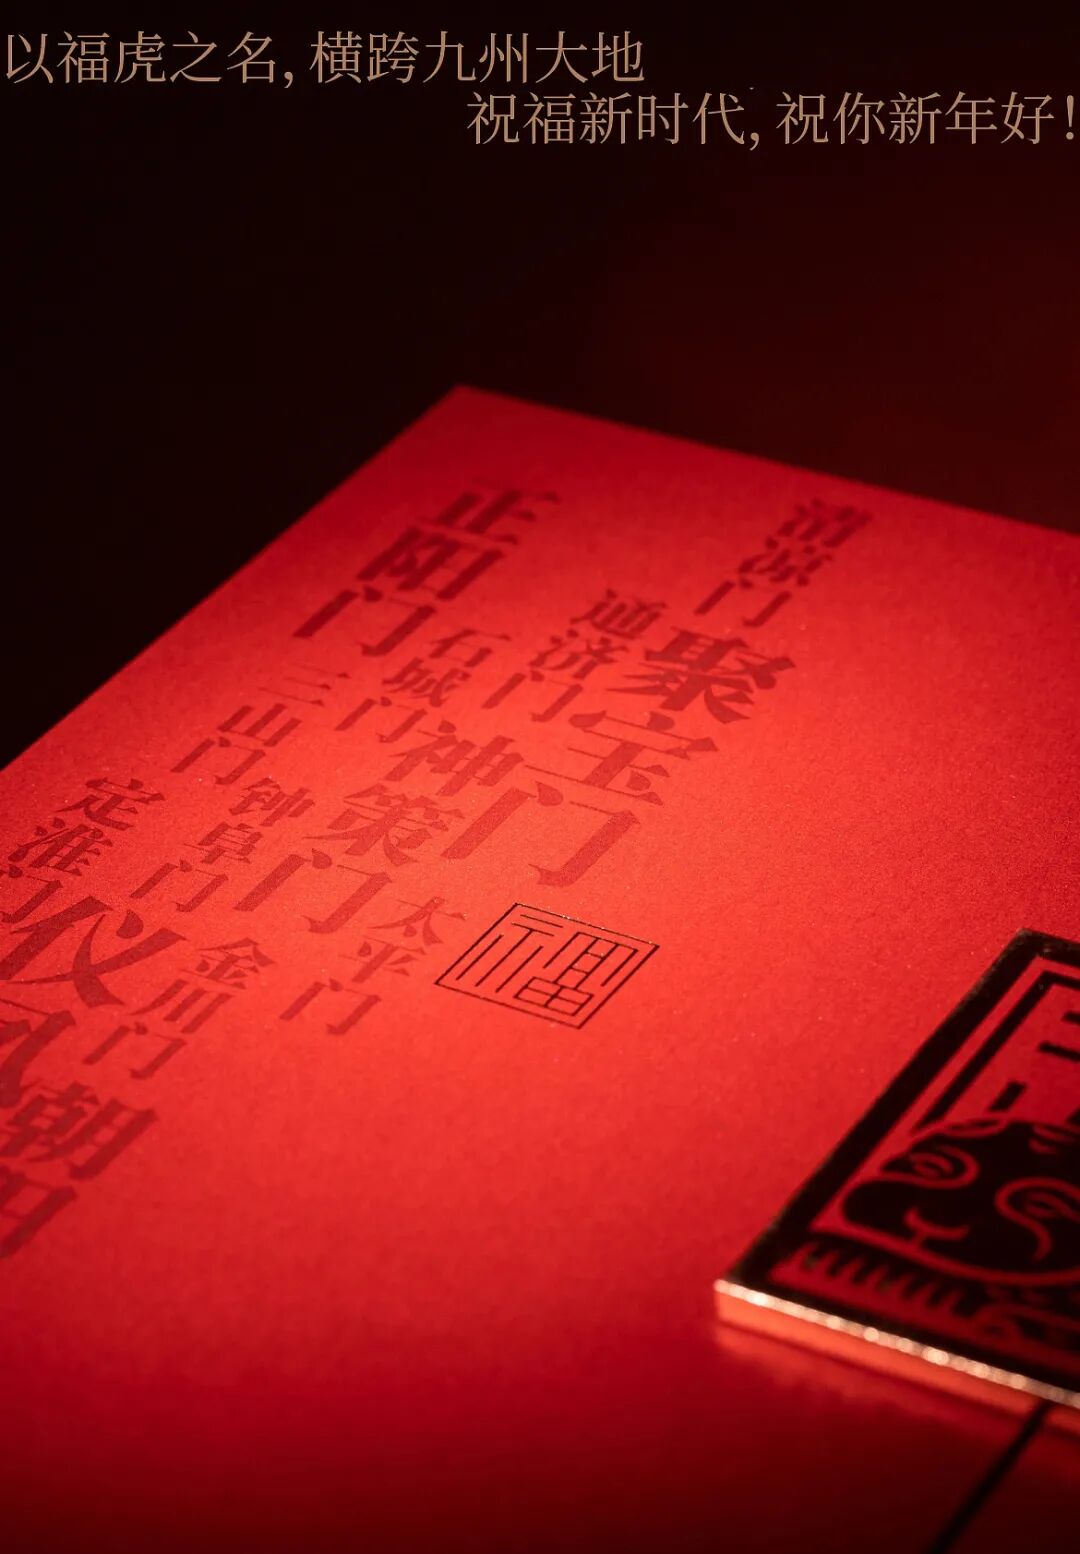 以福虎之名, 横跨九州大地
祝福新时代, 祝你新年好!
清凉门
聚宝门
通济门
正阳门
石城门
神策门
三山门
钟阜门
太平门
定淮门
仪凤
金川门
朝阳
福